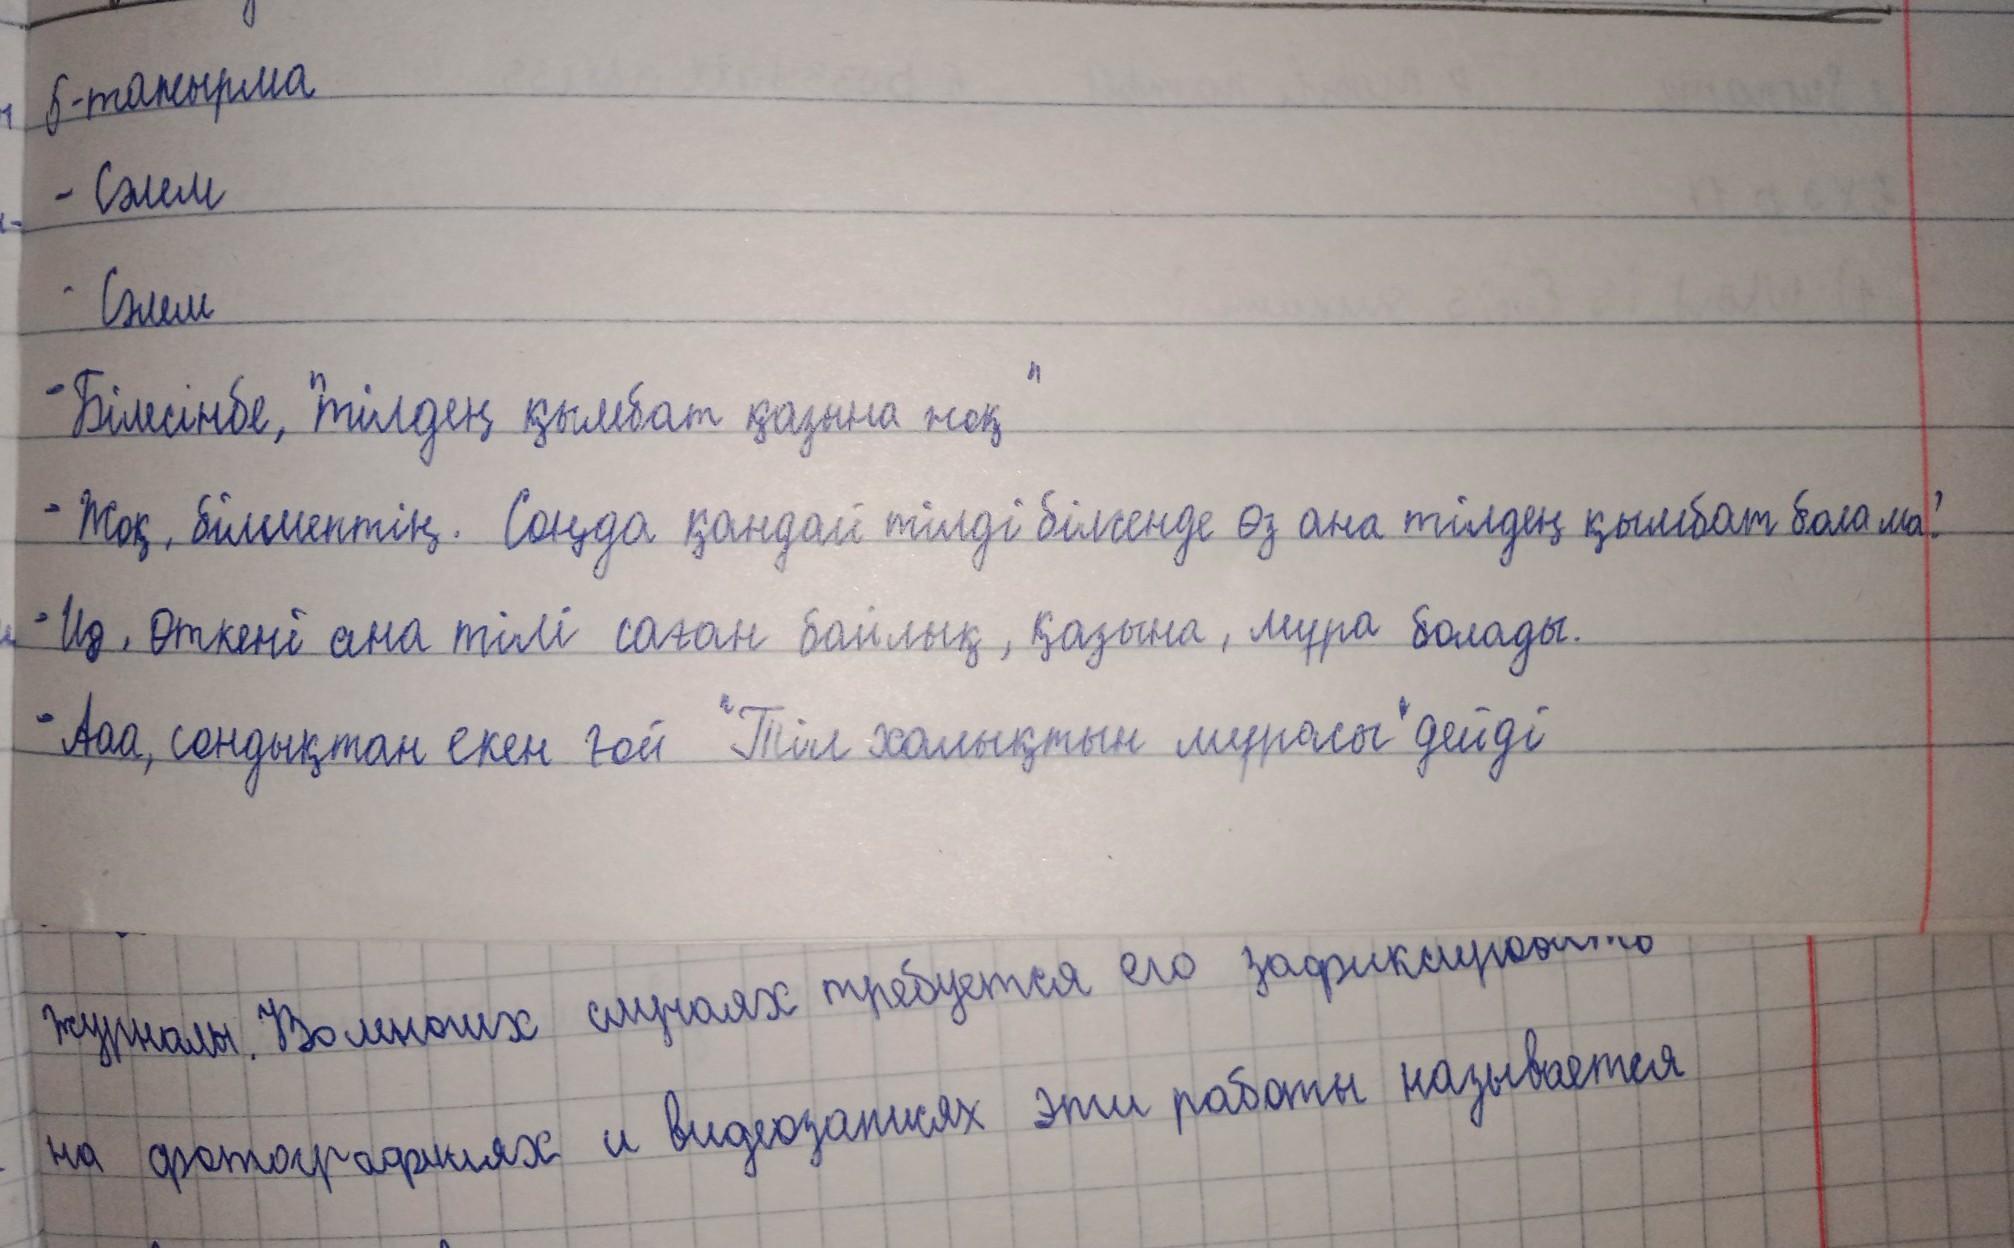 5-тапсырма
- Сәлем
- Сәлем
- Білесінбе, "тілдең қымбат қазына жоқ"
- Жоқ, білмептің. Соңда қандай тілді білсенде өз ана тілдең қымбат бола ма?
- Иә, өткені ана тілі саған байлық, қазына, мұра болады.
- Ааа, сондықтан екен ғой "Тіл халықтын мұрасы" дейді
журналы. Во многих случаях требуется его зафиксировать
на фотографиях и видеозаписях эти работы называется